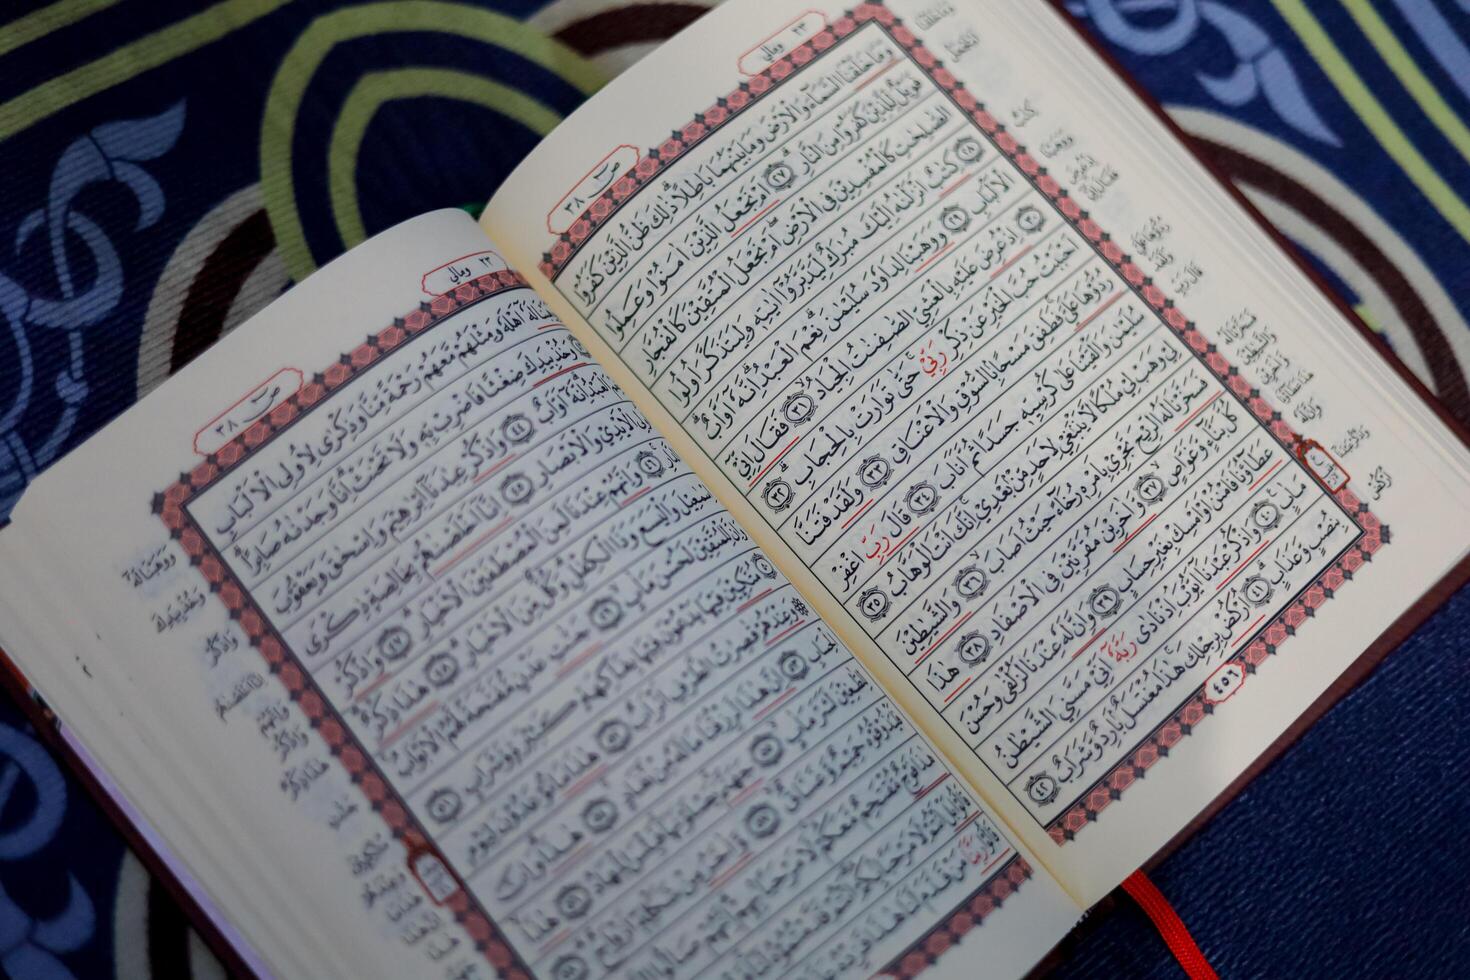 ٢٣ ومالي
صٓ ٣٨
وَمَا خَلَقْنَا السَّمَآءَ وَالْاَرْضَ وَمَا بَيْنَهُمَا بَاطِلًا ذٰلِكَ ظَنُّ الَّذِيْنَ كَفَرُوْا
فَوَيْلٌ لِّلَّذِيْنَ كَفَرُوْا مِنَ النَّارِ ٢٧ اَمْ نَجْعَلُ الَّذِيْنَ اٰمَنُوْا وَعَمِلُوا
الصّٰلِحٰتِ كَالْمُفْسِدِيْنَ فِى الْاَرْضِ اَمْ نَجْعَلُ الْمُتَّقِيْنَ كَالْفُجَّارِ
٢٨ كِتٰبٌ اَنْزَلْنٰهُ اِلَيْكَ مُبٰرَكٌ لِّيَدَّبَّرُوْٓا اٰيٰتِهٖ وَلِيَتَذَكَّرَ اُولُوا
الْاَلْبَابِ ٢٩ وَوَهَبْنَا لِدَاوٗدَ سُلَيْمٰنَ نِعْمَ الْعَبْدُ اِنَّهٗٓ اَوَّابٌ
٣٠ اِذْ عُرِضَ عَلَيْهِ بِالْعَشِيِّ الصّٰفِنٰتُ الْجِيَادُ ٣١ فَقَالَ اِنِّيْٓ
اَحْبَبْتُ حُبَّ الْخَيْرِ عَنْ ذِكْرِ رَبِّيْ حَتّٰى تَوَارَتْ بِالْحِجَابِ ٣٢
رُدُّوْهَا عَلَيَّ فَطَفِقَ مَسْحًا بِالسُّوْقِ وَالْاَعْنَاقِ ٣٣ وَلَقَدْ فَتَنَّا
سُلَيْمٰنَ وَاَلْقَيْنَا عَلٰى كُرْسِيِّهٖ جَسَدًا ثُمَّ اَنَابَ ٣٤ قَالَ رَبِّ اغْفِرْ
لِيْ وَهَبْ لِيْ مُلْكًا لَّا يَنْبَغِيْ لِاَحَدٍ مِّنْ بَعْدِيْ اِنَّكَ اَنْتَ الْوَهَّابُ ٣٥
فَسَخَّرْنَا لَهُ الرِّيْحَ تَجْرِيْ بِاَمْرِهٖ رُخَآءً حَيْثُ اَصَابَ ٣٦ وَالشَّيٰطِيْنَ
كُلَّ بَنَّآءٍ وَّغَوَّاصٍ ٣٧ وَاٰخَرِيْنَ مُقَرَّنِيْنَ فِى الْاَصْفَادِ ٣٨ هٰذَا
عَطَآؤُنَا فَامْنُنْ اَوْ اَمْسِكْ بِغَيْرِ حِسَابٍ ٣٩ وَاِنَّ لَهٗ عِنْدَنَا لَزُلْفٰى وَحُسْنَ
مَاٰبٍ ٤٠ وَاذْكُرْ عَبْدَنَآ اَيُّوْبَ اِذْ نَادٰى رَبَّهٗٓ اَنِّيْ مَسَّنِيَ الشَّيْطٰنُ
بِنُصْبٍ وَّعَذَابٍ ٤١ اُرْكُضْ بِرِجْلِكَ هٰذَا مُغْتَسَلٌ بَارِدٌ وَّشَرَابٌ ٤٢
٤٥٦
٢٣ ومالي
صٓ ٣٨
لَهٗٓ اَهْلَهٗ وَمِثْلَهُمْ مَّعَهُمْ رَحْمَةً مِّنَّا وَذِكْرٰى لِاُولِى الْاَلْبَابِ
وَخُذْ بِيَدِكَ ضِغْثًا فَاضْرِبْ بِّهٖ وَلَا تَحْنَثْ اِنَّا وَجَدْنٰهُ صَابِرًا
الْعَبْدُ اِنَّهٗٓ اَوَّابٌ ٤٤ وَاذْكُرْ عِبٰدَنَآ اِبْرٰهِيْمَ وَاِسْحٰقَ وَيَعْقُوْبَ
الْاَيْدِيْ وَالْاَبْصَارِ ٤٥ اِنَّآ اَخْلَصْنٰهُمْ بِخَالِصَةٍ ذِكْرَى
٤٦ وَاِنَّهُمْ عِنْدَنَا لَمِنَ الْمُصْطَفَيْنَ الْاَخْيَارِ ٤٧ وَاذْكُرْ
وَالْيَسَعَ وَذَا الْكِفْلِ وَكُلٌّ مِّنَ الْاَخْيَارِ ٤٨ هٰذَا ذِكْرٌ
وَاِنَّ لِلْمُتَّقِيْنَ لَحُسْنَ مَاٰبٍ ٤٩ جَنّٰتِ عَدْنٍ مُّفَتَّحَةً لَّهُمُ الْاَبْوَابُ
٥٠ مُتَّكِـِٕيْنَ فِيْهَا يَدْعُوْنَ فِيْهَا بِفَاكِهَةٍ كَثِيْرَةٍ وَّشَرَابٍ ٥١
وَعِنْدَهُمْ قٰصِرٰتُ الطَّرْفِ اَتْرَابٌ ٥٢ هٰذَا مَا تُوْعَدُوْنَ لِيَوْمِ
٥٣ اِنَّ هٰذَا لَرِزْقُنَا مَا لَهٗ مِنْ نَّفَادٍ ٥٤ هٰذَا وَاِنَّ
لَشَرَّ مَاٰبٍ ٥٥ جَهَنَّمَ يَصْلَوْنَهَا فَبِئْسَ الْمِهَادُ ٥٦ هٰذَا
فَلْيَذُوْقُوْهُ حَمِيْمٌ وَّغَسَّاقٌ ٥٧ وَاٰخَرُ مِنْ شَكْلِهٖٓ اَزْوَاجٌ
هٰذَا فَوْجٌ مُّقْتَحِمٌ مَّعَكُمْ لَا مَرْحَبًا بِهِمْ اِنَّهُمْ صَالُوا
قَالُوْا بَلْ اَنْتُمْ لَا مَرْحَبًا بِكُمْ اَنْتُمْ
قَالُوْا رَبَّنَا مَنْ قَدَّمَ لَنَا هٰذَا فَزِدْهُ